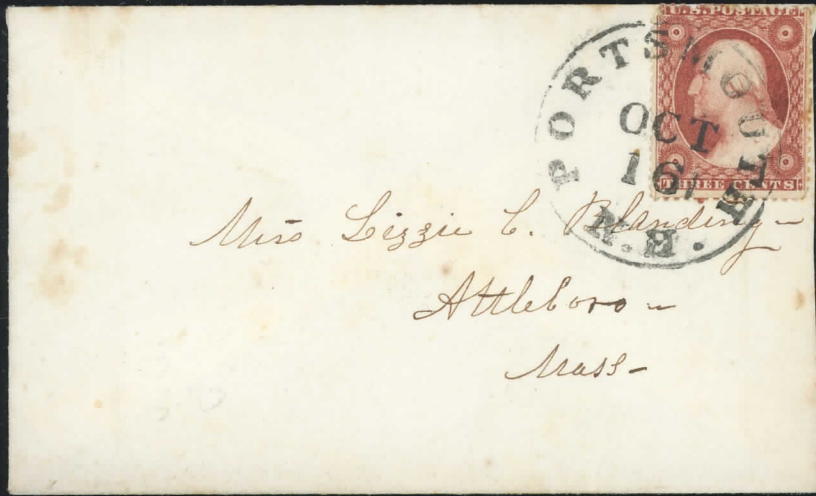 U.S. POSTAGE
THREE CENTS
PORTSMOUTH
N.H.
OCT
16
Miss Lizzie C. Blanding
Attleboro
Mass